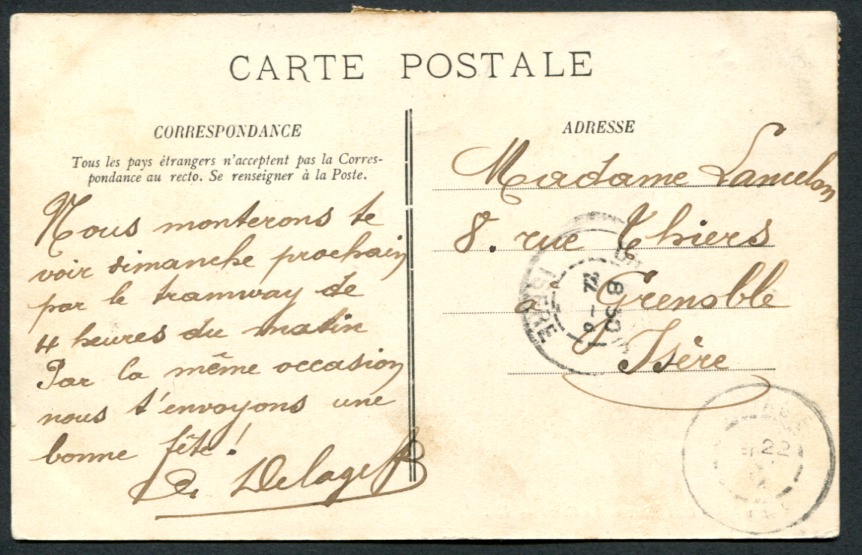 CARTE POSTALE
CORRESPONDANCE
Tous les pays étrangers n'acceptent pas la Corres-
pondance au recto. Se renseigner à la Poste.
Nous monterons te
voir dimanche prochain
par le tramway de
4 heures du matin
Par la même occasion
nous t'envoyons une
bonne fête!
Delage
ADRESSE
Madame
8. rue Thiers
à Grenoble
Isère
ISERE
8 30
22 - 6
22